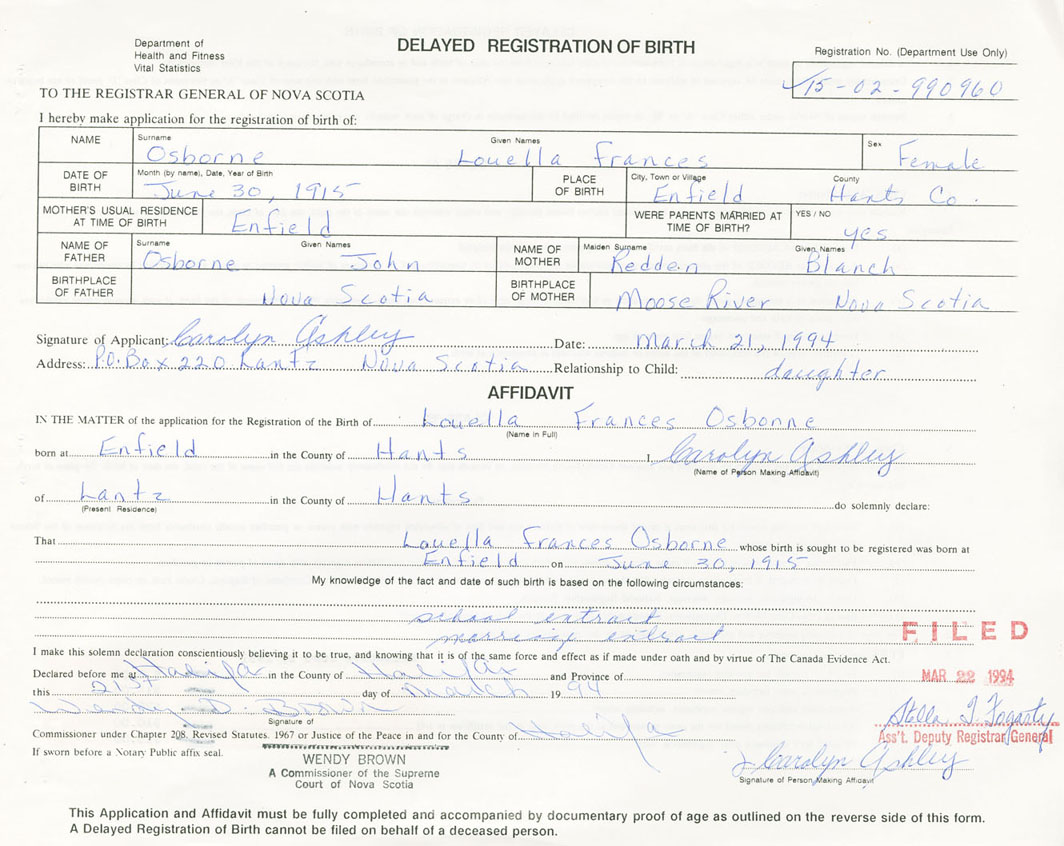 Department of
Health and Fitness
Vital Statistics
DELAYED REGISTRATION OF BIRTH
Registration No. (Department Use Only)
15-02-990960
TO THE REGISTRAR GENERAL OF NOVA SCOTIA
I hereby make application for the registration of birth of:
NAME Surname Osborne Given Names Louella Frances Sex Female
DATE OF BIRTH Month (by name), Date, Year of Birth June 30, 1915 PLACE OF BIRTH City, Town or Village Enfield County Hants Co.
MOTHER'S USUAL RESIDENCE AT TIME OF BIRTH Enfield WERE PARENTS MARRIED AT TIME OF BIRTH? YES / NO yes
NAME OF FATHER Surname Osborne Given Names John NAME OF MOTHER Maiden Surname Redden Given Names Blanch
BIRTHPLACE OF FATHER Nova Scotia BIRTHPLACE OF MOTHER Moose River Nova Scotia
Signature of Applicant: Carolyn Ashley Date: March 21, 1994
Address: P.O. Box 220 Lantz Nova Scotia Relationship to Child: daughter
AFFIDAVIT
IN THE MATTER of the application for the Registration of the Birth of Louella Frances Osbonne
(Name in Full)
born at Enfield in the County of Hants I, Carolyn Ashley
(Name of Person Making Affidavit)
of Lantz in the County of Hants do solemnly declare:
(Present Residence)
That Louella Frances Osborne whose birth is sought to be registered was born at
Enfield on June 30, 1915
My knowledge of the fact and date of such birth is based on the following circumstances:
school extract
marriage extract
FILED
I make this solemn declaration conscientiously believing it to be true, and knowing that it is of the same force and effect as if made under oath and by virtue of The Canada Evidence Act.
Declared before me at Halifax in the County of Halifax and Province of
MAR 22 1994
this 21st day of March 19 94
Wendy D. Brown
Signature of
Stella I. Fogarty
Commissioner under Chapter 208, Revised Statutes, 1967 or Justice of the Peace in and for the County of Halifax
Ass't. Deputy Registrar General
If sworn before a Notary Public affix seal.
WENDY BROWN
A Commissioner of the Supreme
Court of Nova Scotia
Carolyn Ashley
Signature of Person Making Affidavit
This Application and Affidavit must be fully completed and accompanied by documentary proof of age as outlined on the reverse side of this form.
A Delayed Registration of Birth cannot be filed on behalf of a deceased person.